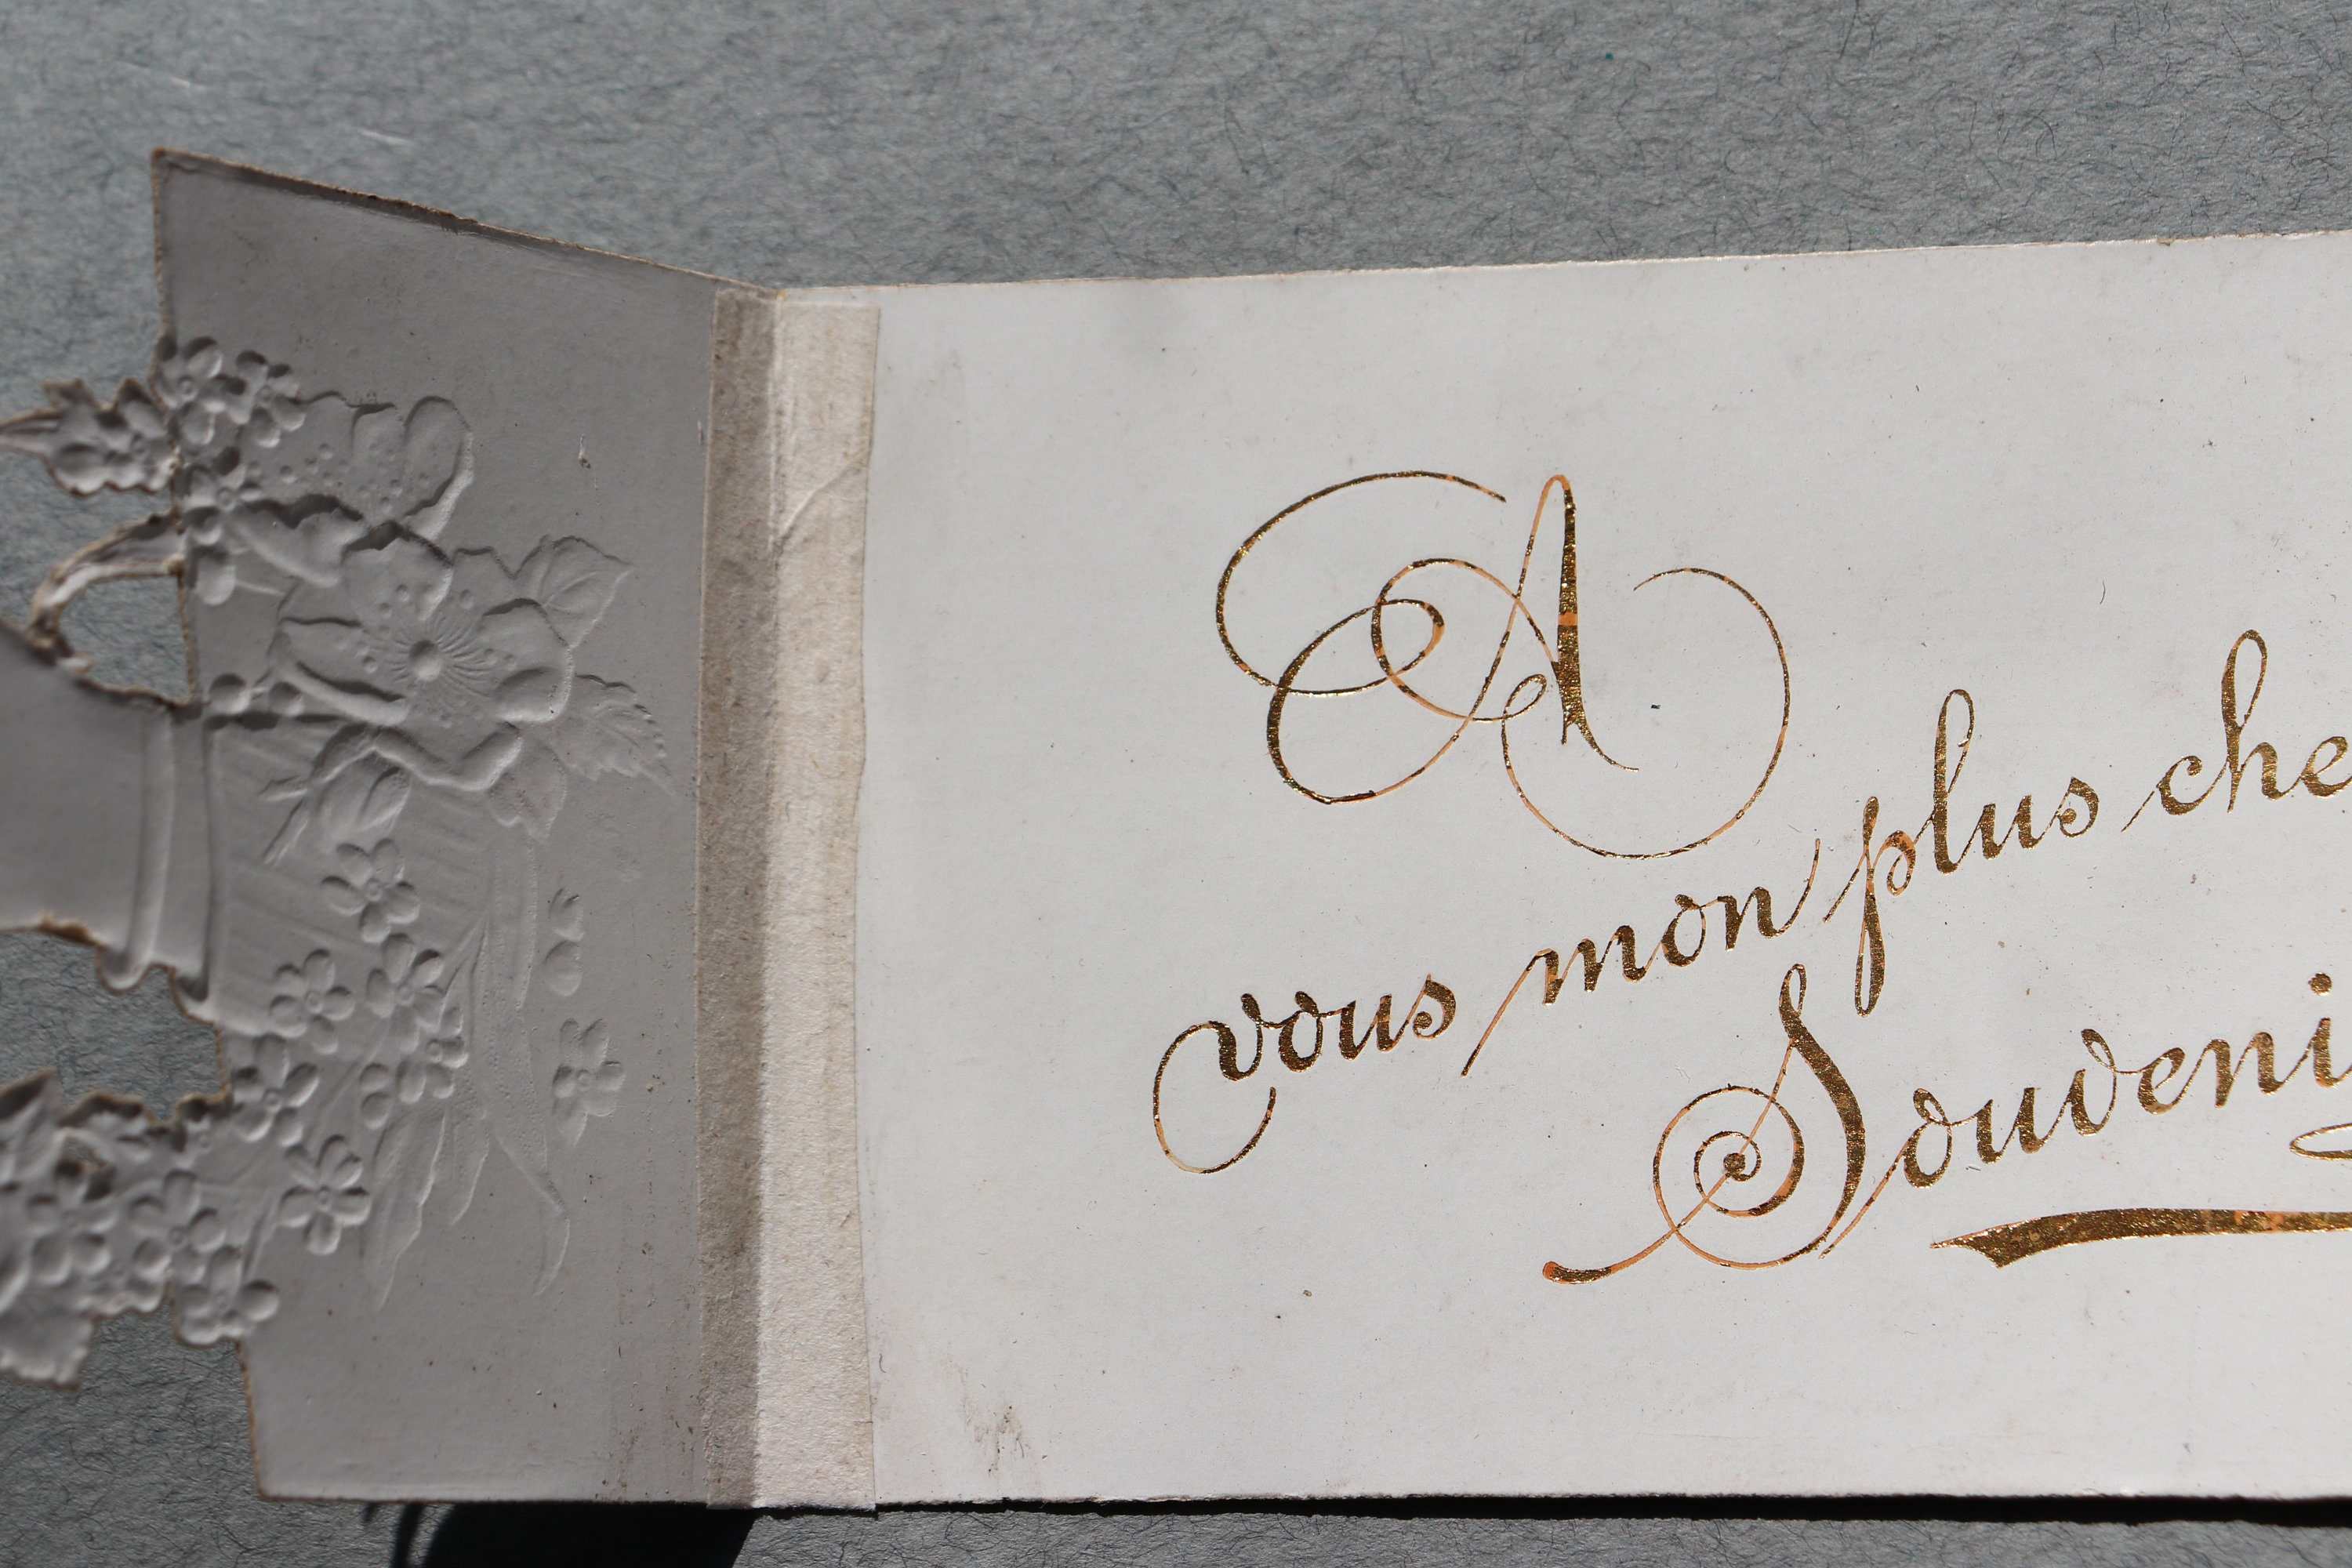 A
vous mon plus che
Souveni